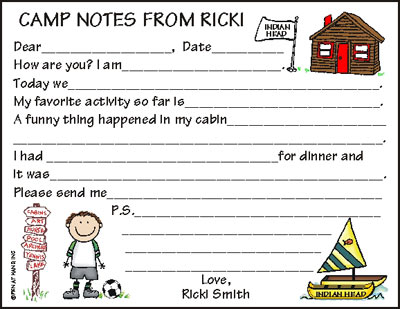 CAMP NOTES FROM RICKI
INDIAN HEAD
Dear__________________, Date________
How are you? I am______________________.
Today we___________________________________________.
My favorite activity so far is___________________________.
A funny thing happened in my cabin______________________
__________________________________________________.
I had ________________________________for dinner and
It was_____________________________________________.
Please send me______________________________________
P.S.___________________________
CABINS
ART
POOL
ARCHERY
TENNIS
Love,
Ricki Smith
INDIAN HEAD